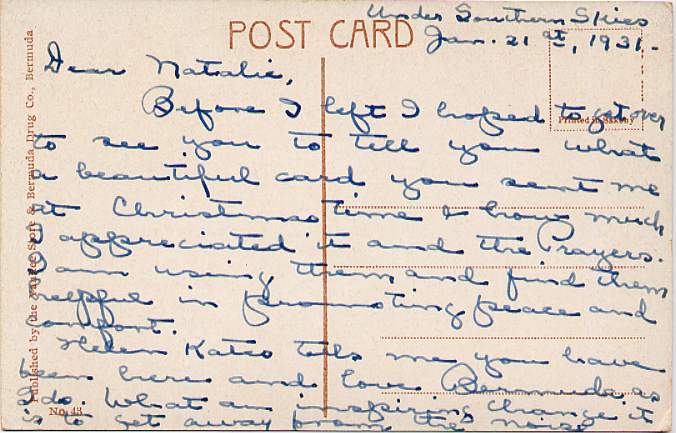 Under Southern Skies
POST CARD
Jan. 21st, 1931.
Dear Natalie,
Before I left I hoped to get over
Printed in Saxony
to see you to tell you what
a beautiful card you sent me
at Christmas time & how much
I appreciated it and the Prayers.
I am using them and find them
helpful in promoting peace and
comfort.
Helen tells me you have
been here and love Bermuda as
I do. What an inspiring change it
is to get away from the noise
Published by the Yankee Store & Bermuda Drug Co., Bermuda
No. 43